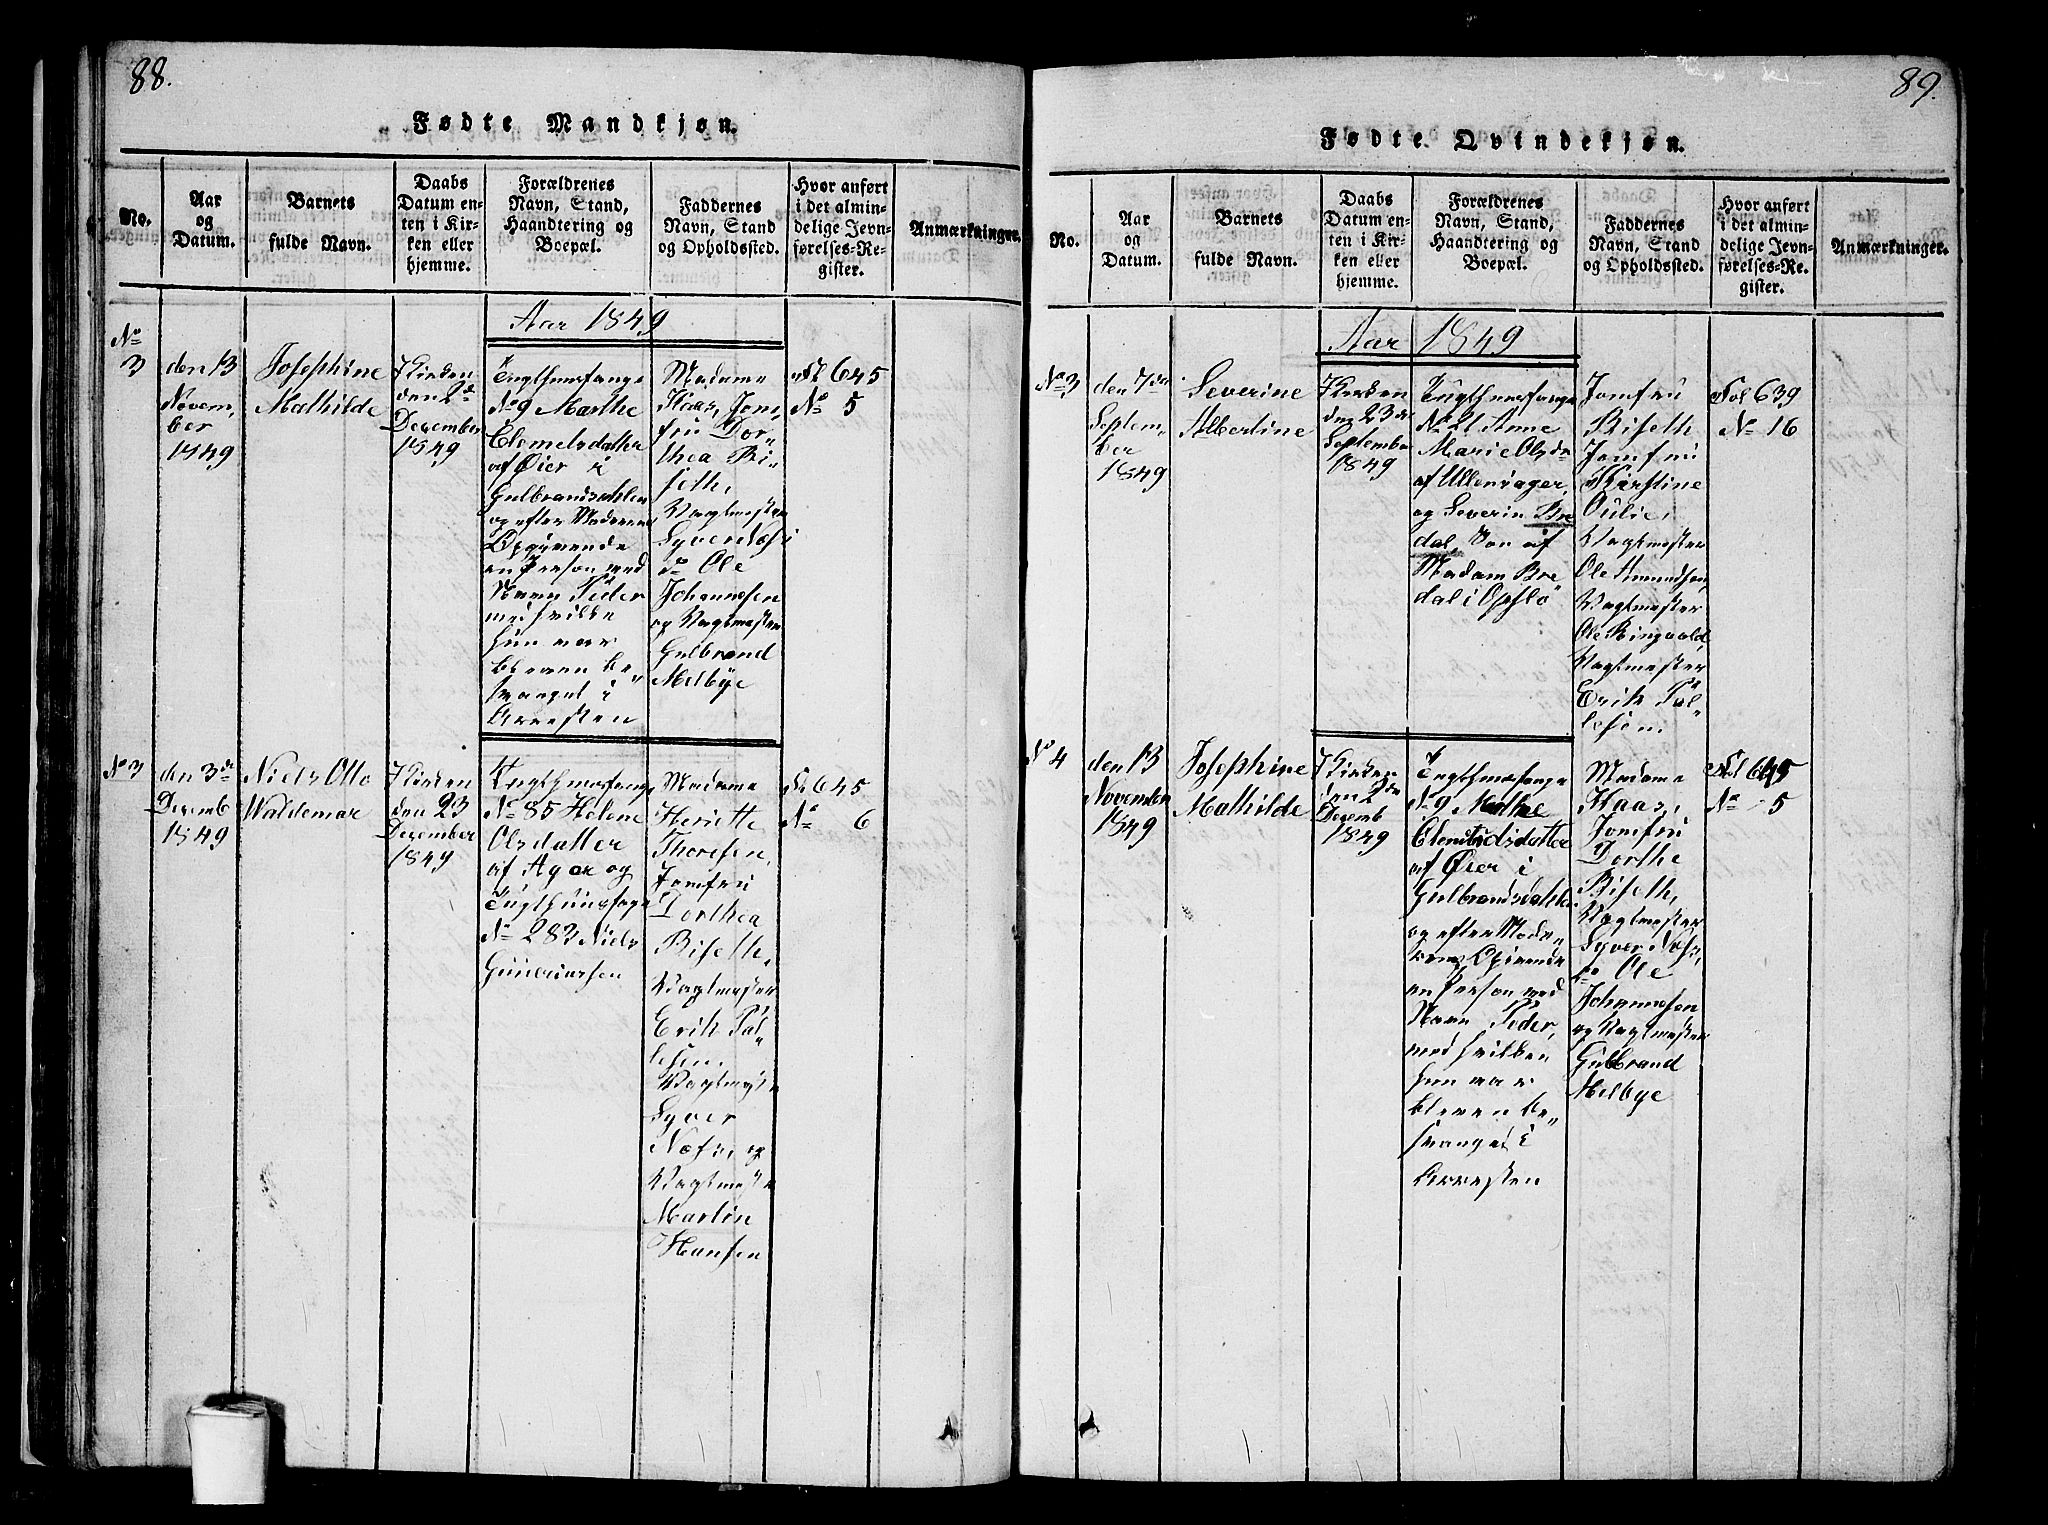 88.
Fødte Mandkjøn.
No.
Aar
og
Datum.
Barnets
fulde Navn.
Daabs
Datum en-
ten i Kir-
ken eller
hjemme.
Forældrenes
Navn, Stand,
Haandtering og
Boepæl.
Faddernes
Navn, Stand
og Opholdssted.
Hvor anført
i det almin-
delige Jevn-
førelses-Re-
gister.
Anmærkninger.
Aar 1849
No
3
den 13
Novem,
ber
1849
Josephine
Mathilde
I Kirken
den 2de
Dezember
1849
Tugthusfange
No 9 Marthe
Clemetsdatter
af Øier i
Gulbrandsdahlen
og efter Moderens
Opgivende
en Person med
Navn Peder
med hvilke
hun var
bleven be„
svanget i
Arresten
Madame
Haas, Jom,
fru Dor„
thea Ri„
seth,
Vagtmester
Syver Næss
do Ole
Johannesen
og Vagtmester
Gulbrand
Melbye
Fol 645
No 5
No 3
den 3de
Dezemb
1849
Niels Otto
Waldemar
I Kirken
den 23
Dezember
1849
Tugthusfange
No 85 Helene
Olsdatter
af Ager og
Tugthuusfange
No 283 Niels
Gunbiørsen
Madame
Heriette
Thoresen,
Jomfru
Dorthea
Riseth,
Vagtmester
Erik Pål„
lesen.
Vagtmester
Syver
Næss, og
Vagtmester
Martin
Hansen
Fol 645
No 6
89.
Fødte Qvindekjøn.
No.
Aar
og
Datum.
Barnets
fulde Navn.
Daabs
Datum en-
ten i Kir-
ken eller
hjemme.
Forældrenes
Navn, Stand,
Haandtering og
Boepæl.
Faddernes
Navn, Stand
og Opholdssted.
Hvor anført
i det almin-
delige Jevn-
førelses-Re-
gister.
Anmærkninger.
Aar 1849
No 3
den 7de
Septem,
ber
1849
Severine
Albertine
I Kirken
den 23de
September
1849
Tugthusfange
No 21 Anne
Marie Olsda
af Ullensager,
og Severin Bre
dal, Søn af
Madam Bre
dal i Opslo
Jomfru
Riseth
Jomfru
Kirstine
Vagtmester
Ole Amundsen,
Vagtmester
Ole Ringvold,
Vagtmester
Erik Pål„
lesen.
Fol 639
No 16
No 4
den 13
November
1849
Josephine
Mathilde
I Kirken
den 2den
Dezemb
1849
Tugthusfange
No 9 Marthe
Clemetsdatter
af Øier i
Gulbrandsdahlen
og efter Mode„
rens Opgivende
en Person med
Navn Peder,
med hvilken
hun var
bleven be„
svanget i
Arresten
Madame
Haas,
Jomfru
Dorthe
Riseth,
Vagtmester
Syver Næss,
do Ole
Johannesen
og Vagtmester
Gulbrand
Melbye
Fol 645
No 5